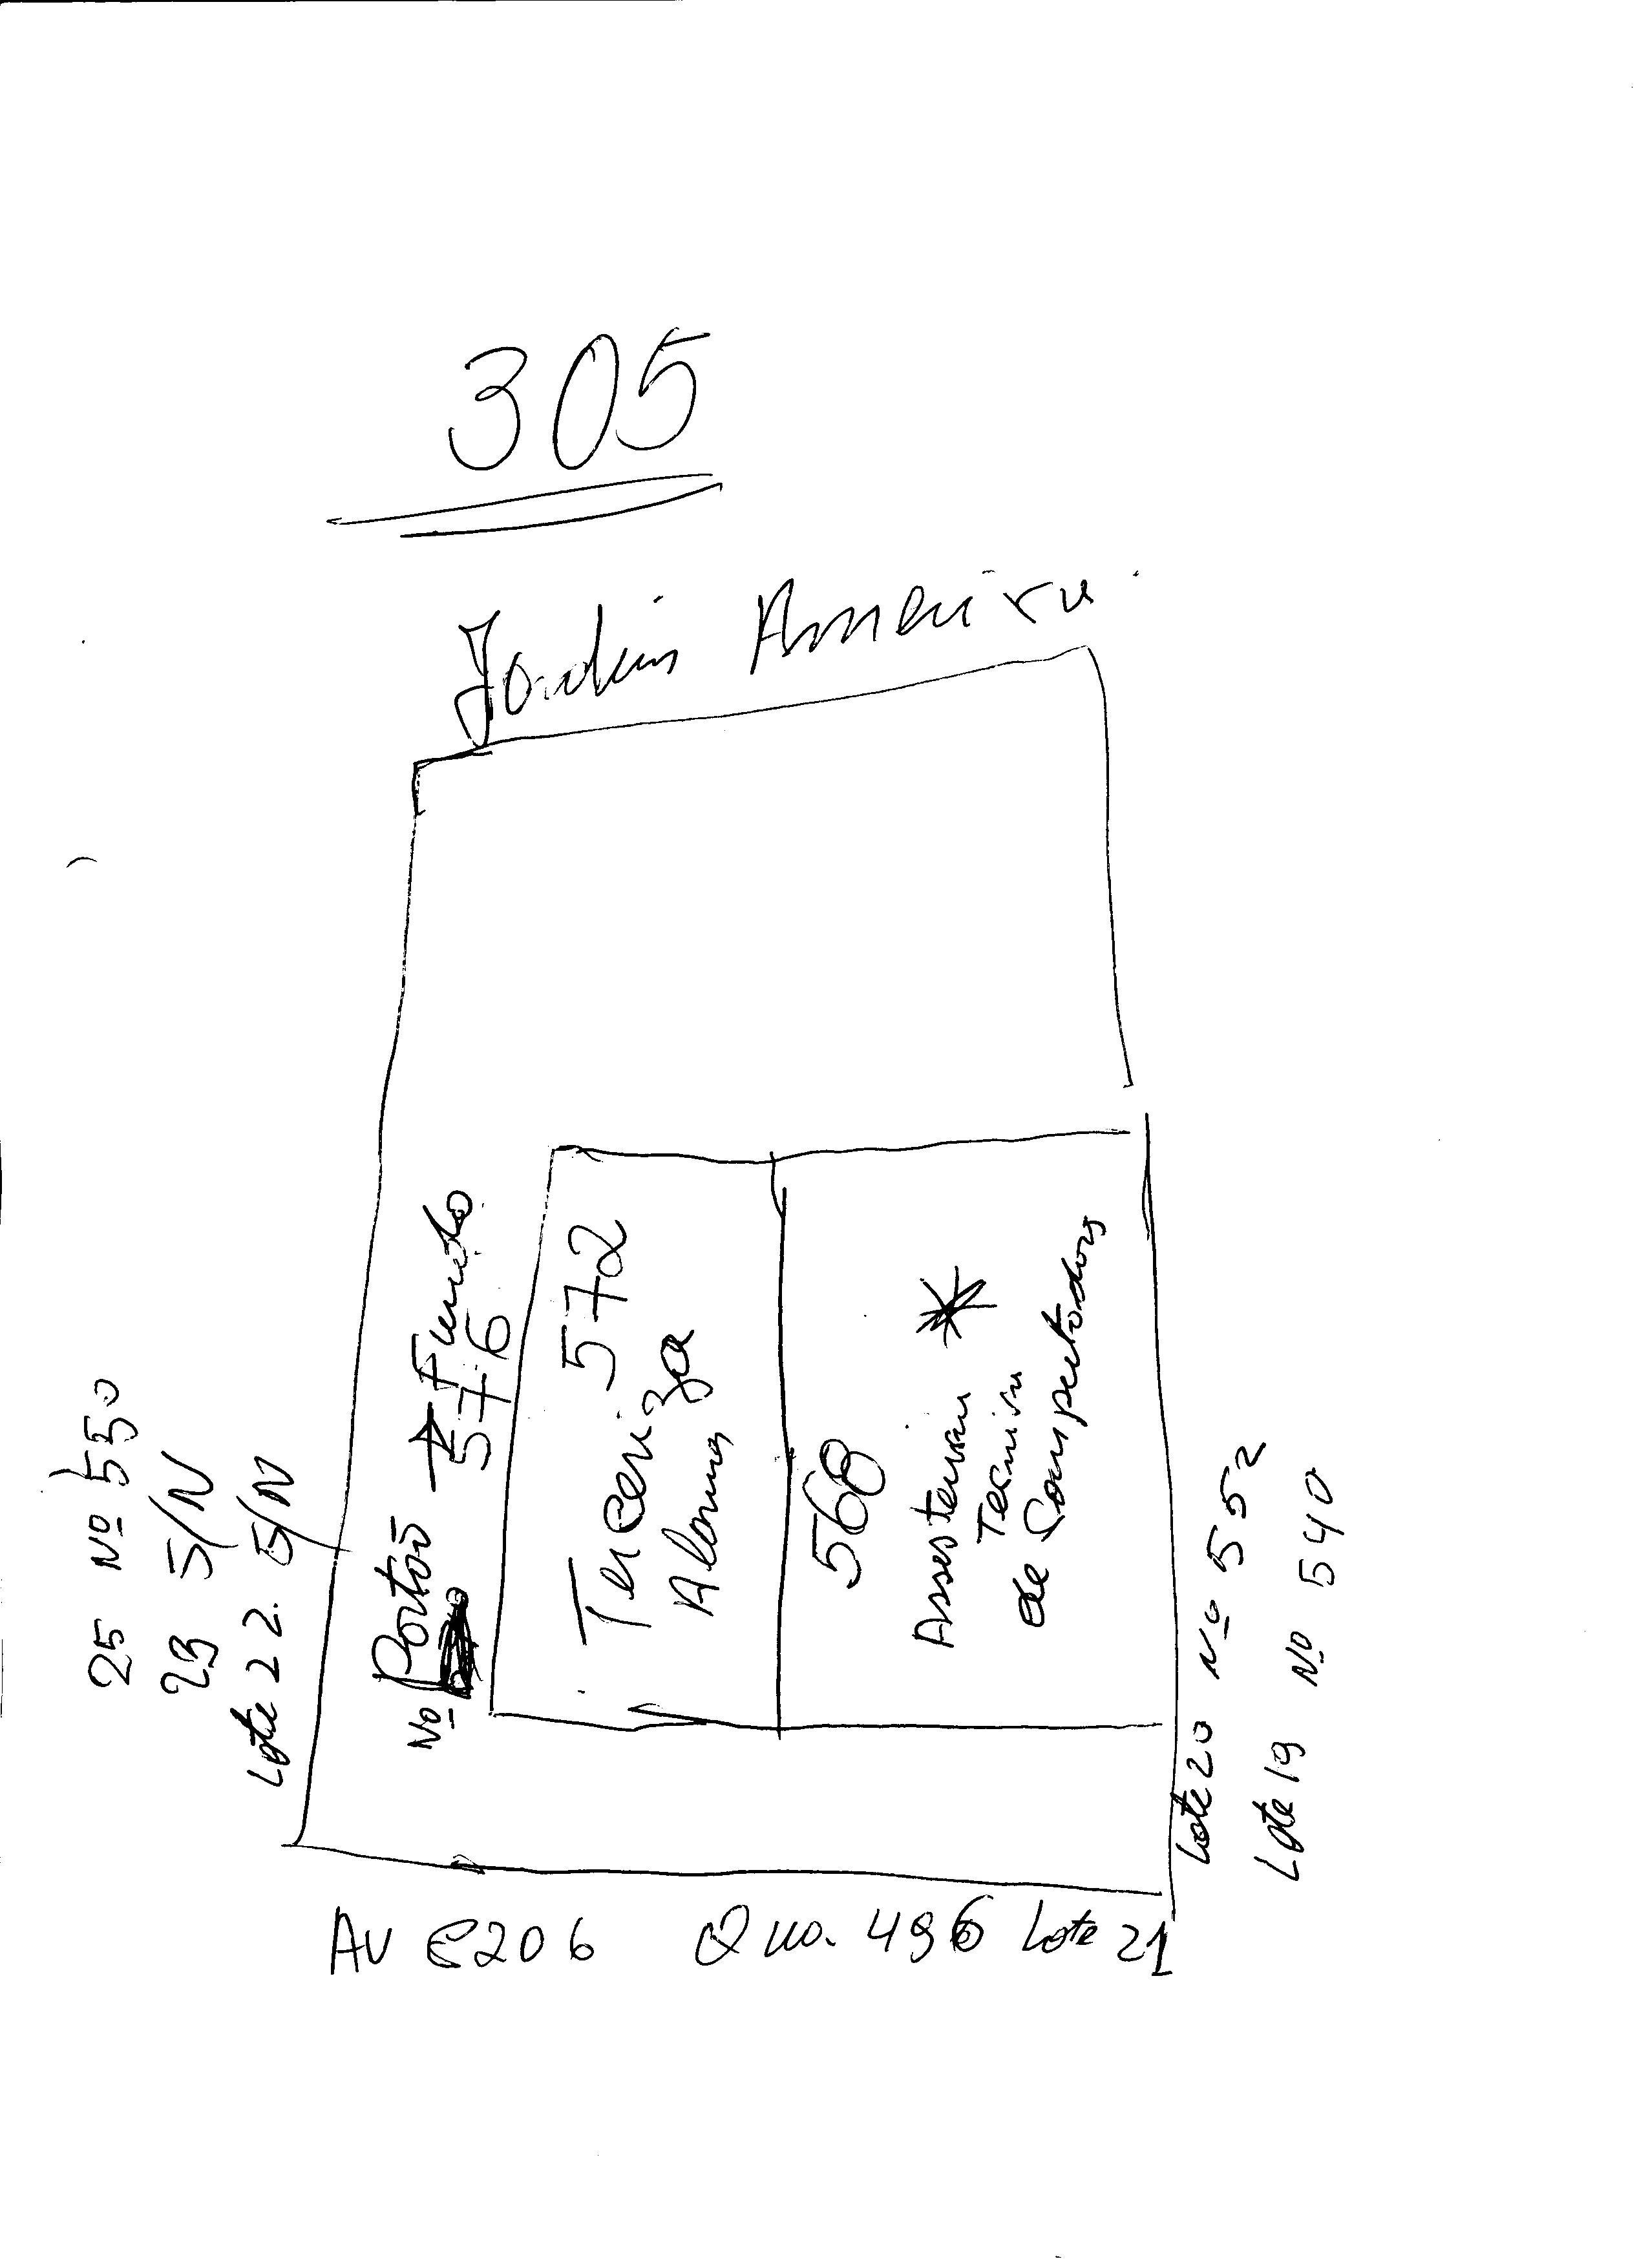 305
Jardim América
25 Nº 550
23 S/N
Lote 22. S/N
Portão → Fundo
Nº 576
572
Terceriza
Alarmes
568
Assesteria
Tecnica
de Computadores
Lote 20 Nº 552
Lote 19 Nº 540
Av C206 Qua. 496 Lote 21